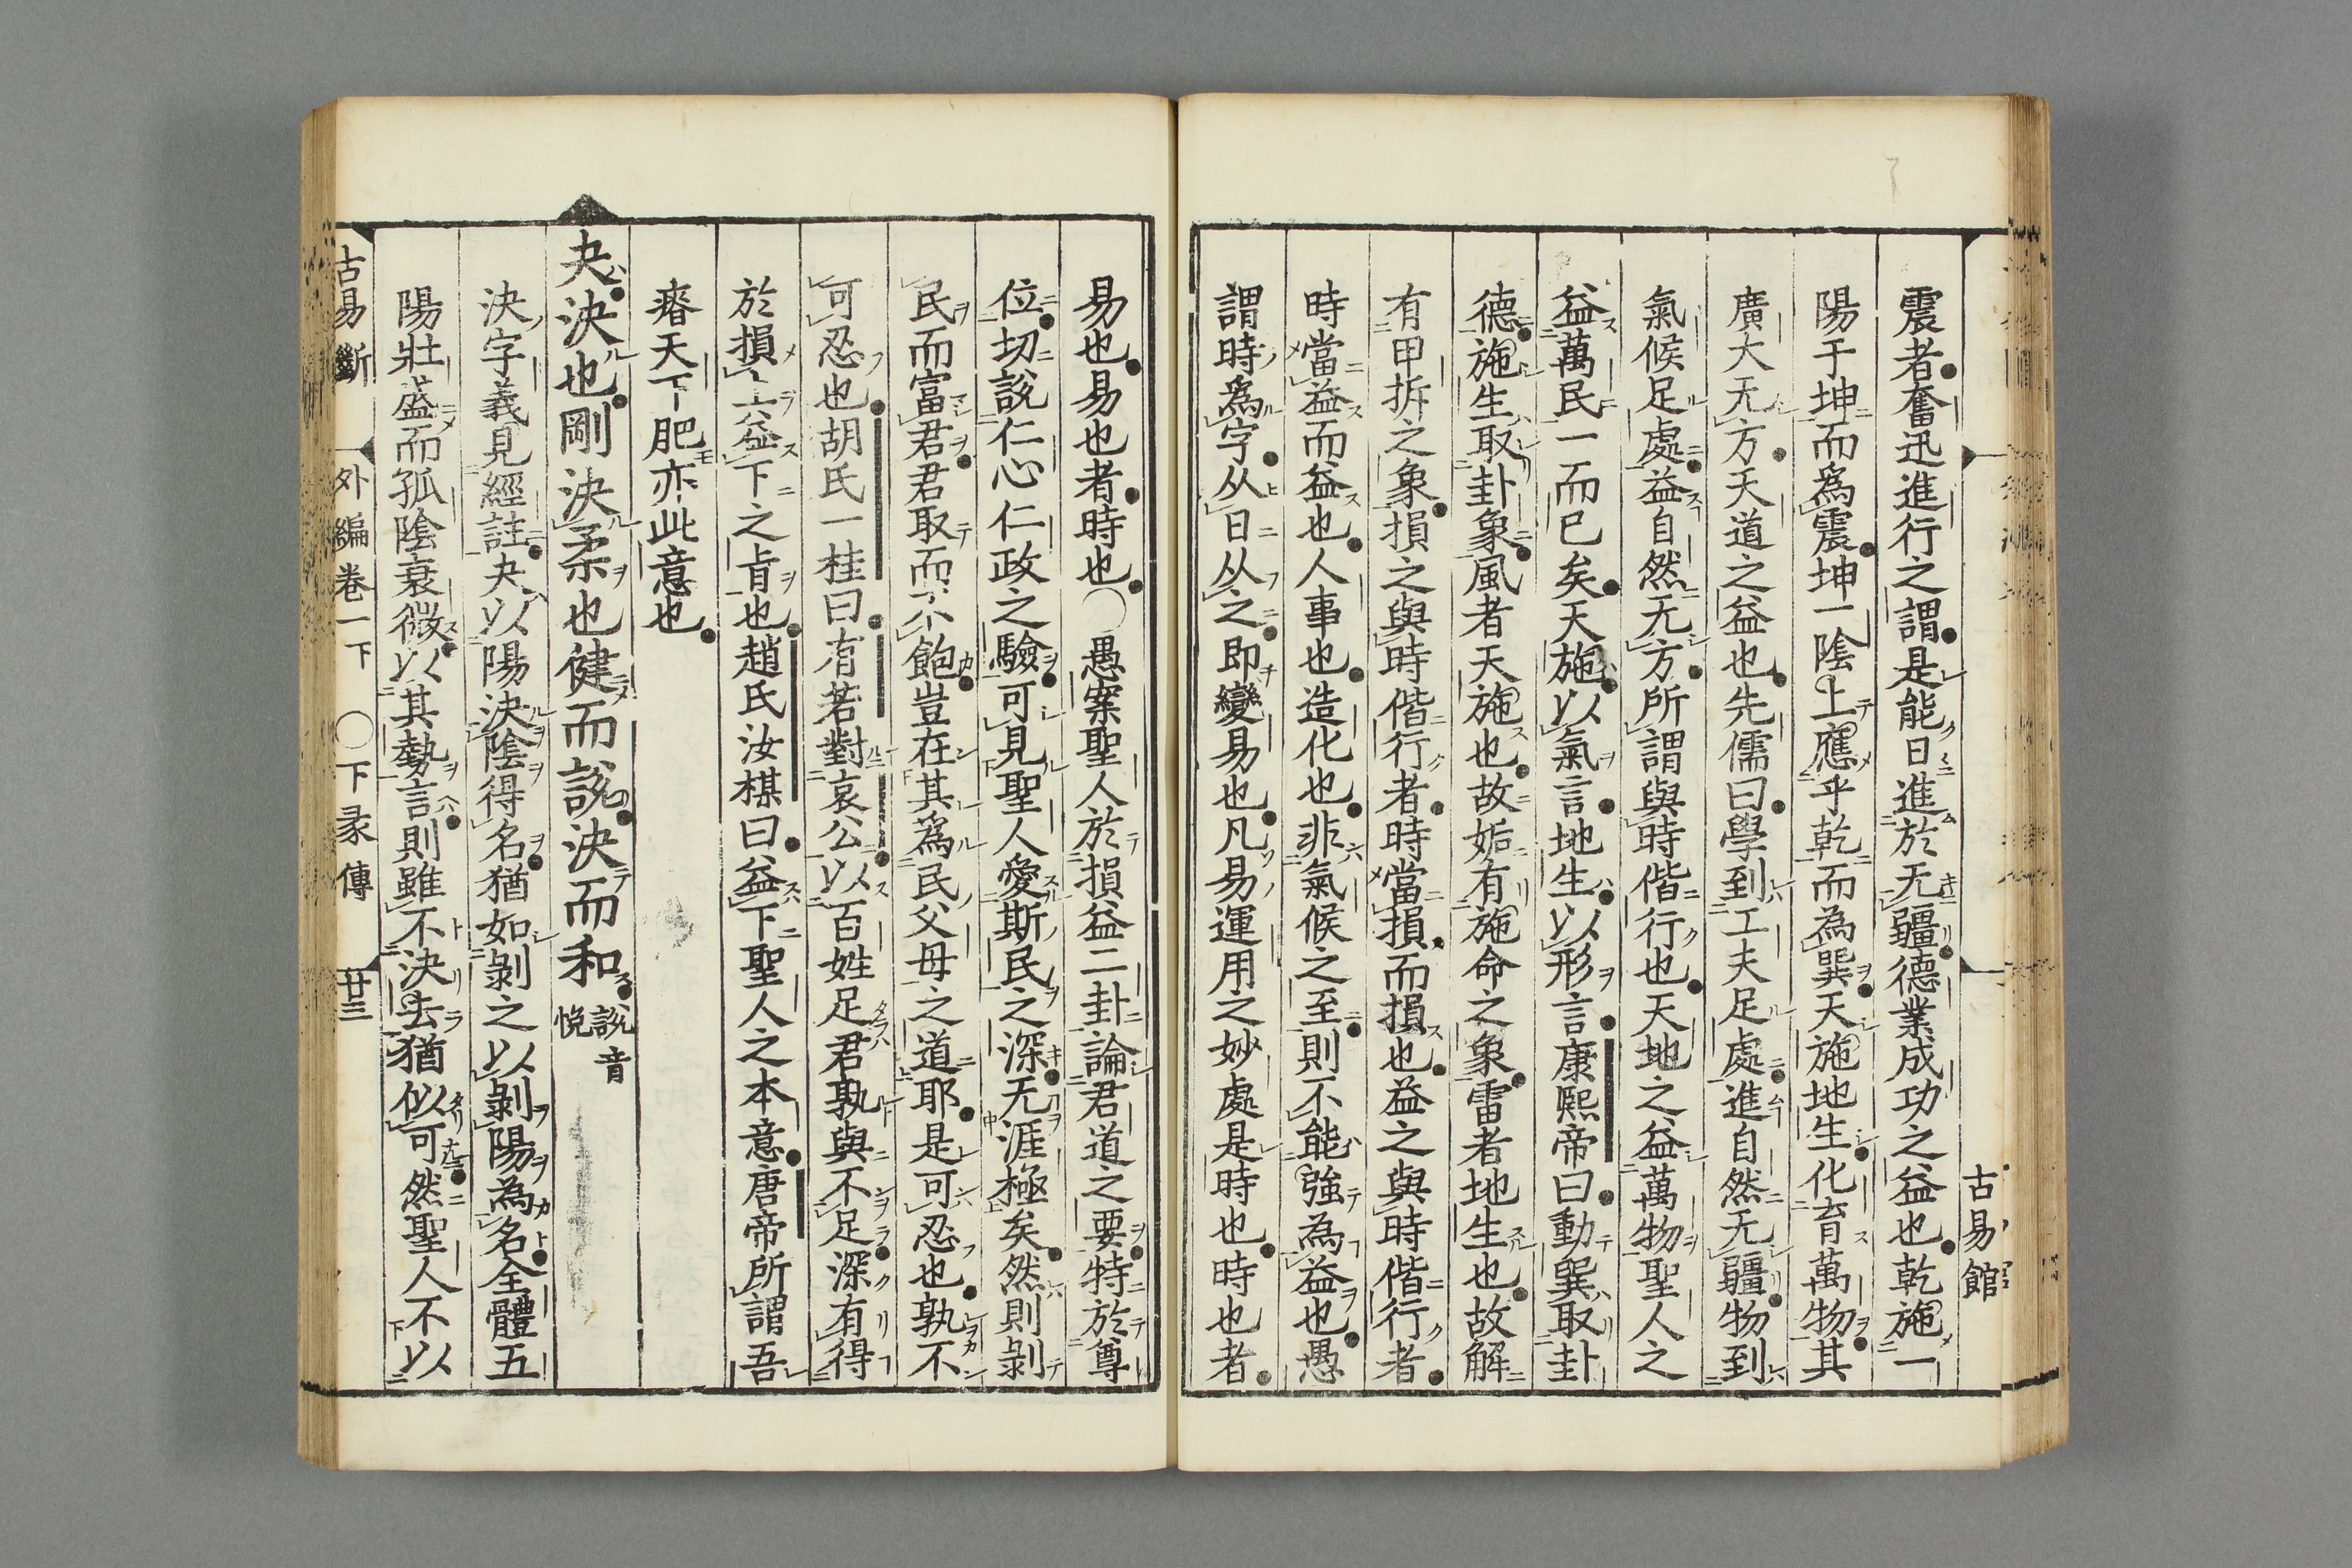 古易館
震者奮迅進行之謂是能日進於无疆德業成功之益也乾施一
陽于坤而爲震坤一陰上應乎乾而為巽天施地生化育萬物其
廣大无方天道之益也先儒曰學到工夫足處進自然无疆物到
氣候足處益自然无方所謂與時偕行也天地之益萬物聖人之
益萬民一而已矣天施以氣言地生以形言康熙帝曰動巽取卦
德施生取卦象風者天施也故姤有施命之象雷者地生也故解
有甲拆之象損之與時偕行者時當損而損也益之與時偕行者
時當益而益也人事也造化也非氣候之至則不能強為益也愚
謂時爲字从日从之即變易也凡易運用之妙處是時也時也者
易也易也者時也○愚案聖人於損益二卦論君道之要特於尊
位切說仁心仁政之驗可見聖人愛斯民之深无涯極矣然則剝
民而富君君取而不飽豈在其爲民父母之道耶是可忍也孰不
可忍也胡氏一桂曰有若對哀公以百姓足君孰與不足深有得
於損上益下之旨也趙氏汝楳曰益下聖人之本意唐帝所謂吾
瘠天下肥亦此意也
夬決也剛決柔也健而說決而和說音悅
決字義見經註夬以陽決陰得名猶如剝之以剝陽為名全體五
陽壯盛而孤陰衰微以其勢言則雖不決去猶似可然聖人不以
古易斷 外編卷一下 ○下彖傳 廿三